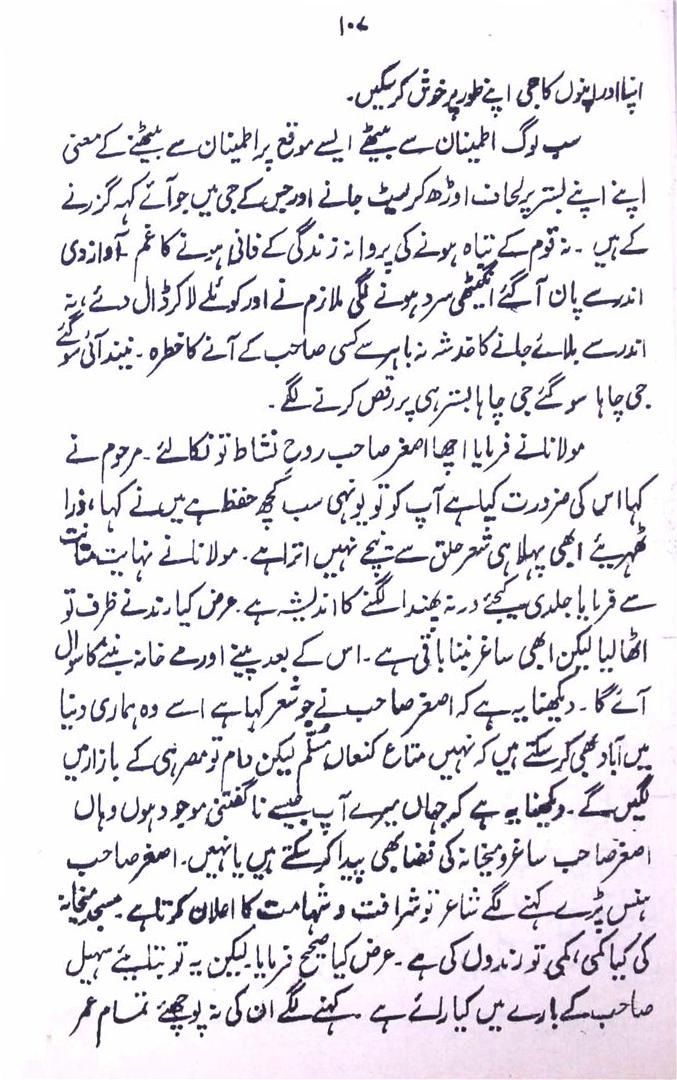 ۱۰۷
اپنا اور اپنوں کا جی اپنے طور پر خوش کر سکیں۔
سب لوگ اطمینان سے بیٹھے ایسے موقع پر اطمینان سے بیٹھنے کے معنی
اپنے اپنے بستر پر لحاف اوڑھ کر لیٹ جانے اور جس کے جی میں جو آئے کہہ گزرنے
کے ہیں۔ نہ قوم کے تباہ ہونے کی پروا نہ زندگی کے فانی ہونے کا غم۔ آواز دی
اندر سے پان آگئے انگیٹھی سرد ہونے لگی ملازم نے اور کوئلے لا کر ڈال دئے، نہ
اندر سے بلائے جانے کا خدشہ نہ باہر سے کسی صاحب کے آنے کا خطرہ۔ نیند آئی سو گئے
جی چاہا سو گئے جی چاہا بستر ہی پر رقص کرنے لگے۔
مولانا نے فرمایا اچھا اصغر صاحب روحِ نشاط تو نکالئے۔ مرحوم نے
کہا اس کی ضرورت کیا ہے آپ کو تو یونہی سب کچھ حفظ ہے میں نے کہا، ذرا
ٹھہریئے ابھی پہلا ہی شعر حلق سے نیچے نہیں اترا ہے۔ مولانا نے نہایت متانت
سے فرمایا جلدی کیجئے ورنہ پھندا لگنے کا اندیشہ ہے۔ عرض کیا رند نے ظرف تو
اٹھا لیا لیکن ابھی ساغر بننا باقی ہے۔ اس کے بعد پینے اور مے خانہ بننے کا سوال
آئے گا۔ دیکھنا یہ ہے کہ اصغر صاحب نے جو شعر کہا ہے اسے وہ ہماری دنیا
میں آباد بھی کر سکتے ہیں کہ نہیں متاع کنعاں مسلّم لیکن دام تو مصر ہی کے بازار میں
لگیں گے۔ دیکھنا یہ ہے کہ جہاں میرے آپ جیسے ناگفتنی موجود ہوں وہاں
اصغر صاحب ساغر و میخانہ کی فضا بھی پیدا کر سکتے ہیں یا نہیں۔ اصغر صاحب
ہنس پڑے کہنے لگے شاعر تو شرافت و شہامت کا اعلان کرتا ہے۔ مسجد میخانہ
کی کیا کمی، کمی تو رندوں کی ہے۔ عرض کیا صحیح فرمایا لیکن یہ تو بتلایئے سہیل
صاحب کے بارے میں کیا رائے ہے۔ کہنے لگے ان کی نہ پوچھئے تمام عمر